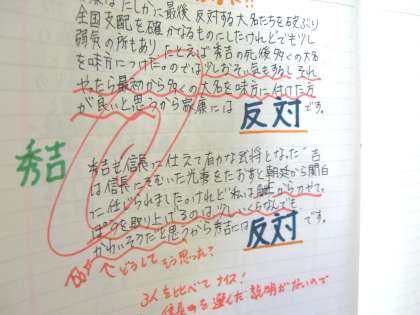 最後 反対する大名たちを
全国支配を確かなものにしたけれどでも少し
弱気の所もありたとえば秀吉の死後多くの大名
を味方につけた。のでは少しおそい気もするしそれ
やったら最初から多くの大名を味方に付けた方
が良いと思うから家康には 反対 です。
秀吉
秀吉も信長に仕えて有力な武将となった 吉
は信長にそむいた光秀をたおすと朝廷から関白
に任じられました。けれど私は
を取り上げるのは少しいくらなんでも
かわいそうだと思うから秀吉には 反対 です。
↑どうして もう思った?
3人を比べてナイス!
信長を選んだ説明がないので